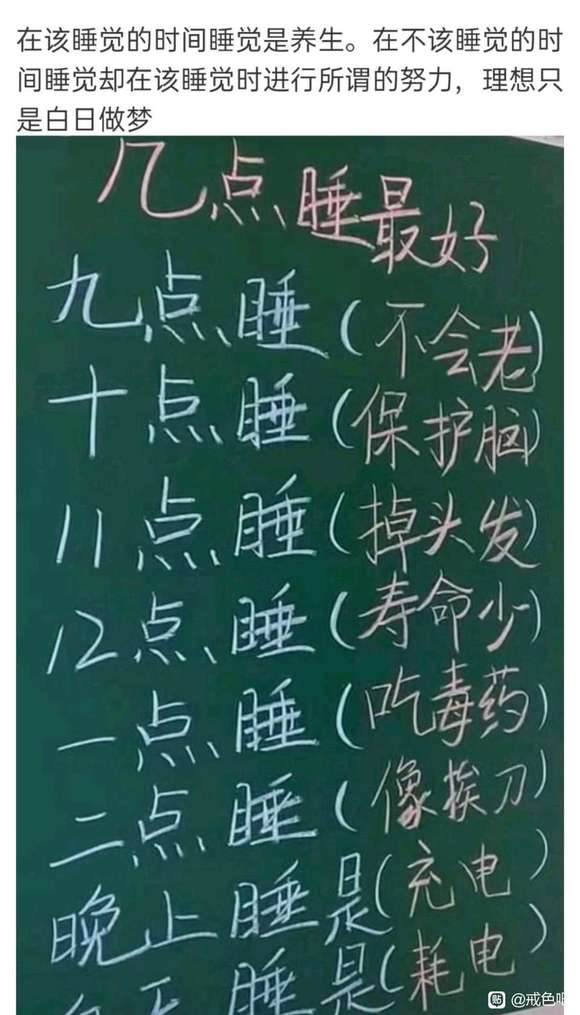 在该睡觉的时间睡觉是养生。在不该睡觉的时
间睡觉却在该睡觉时进行所谓的努力，理想只
是白日做梦
几点睡最好
九点睡（不会老）
十点睡（保护脑）
11点睡（掉头发）
12点睡（寿命少）
一点睡（吃毒药）
二点睡（像挨刀）
晚上睡是（充电）
睡是（耗电）
贴 @戒色吧